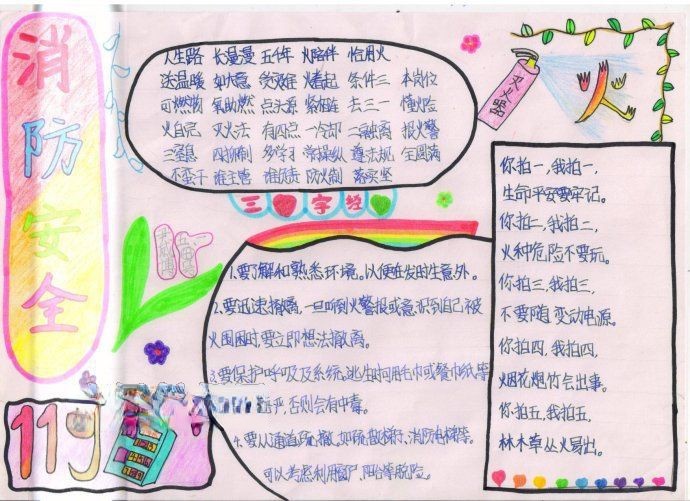 消防安全
人生路 长漫漫 五千年 火陪伴 恰用火
送温暖 如大意 火看起 条件三 本岗位
可燃物 氧助燃 点火源 紧相连 去三一 懂火险
火自完 灭火法 有四点 一冷却 二隔离 报火警
三窒息 四抑制 多学习 常操纵 遵法规 全圆满
不蛮干 谁主管 谁负责 防火制 落实坚
三字经
灭火器
火
你拍一,我拍一,
生命平安要牢记。
你拍二,我拍二,
火种危险不要玩。
你拍三,我拍三,
不要随变动电源。
你拍四,我拍四,
烟花炮竹会出事。
你拍五,我拍五,
林木草丛火易出。
1.要了解和熟悉环境。以便在发时生意外。
2.要迅速撤离,一旦听到火警报或意识到自己被
火围困时,要立即想法撤离。
3.要保护呼吸及系统,逃生时用毛巾或餐巾纸等
严,否则会有中毒。
4.要从通道疏散。如疏散梯行、消防电梯等。
可以考虑利用窗户、阳台等脱险。
119